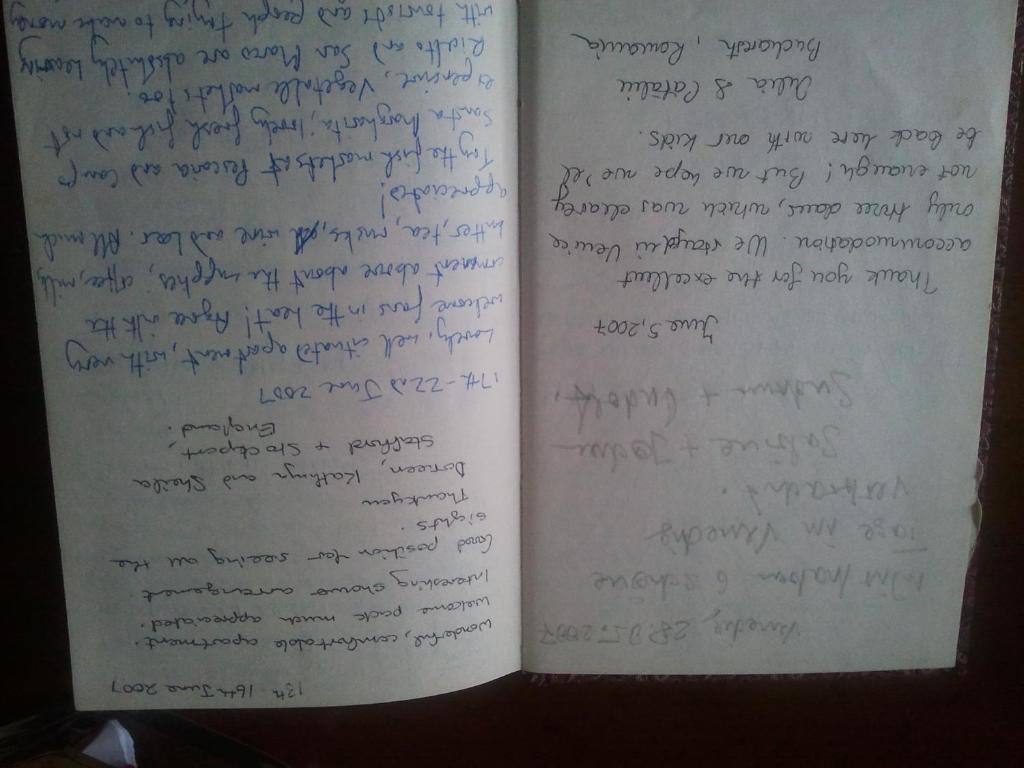 Venedig, 28.05.2007
Wir haben 6 schöne
Tage in Venedig
verbracht.
Sabine +
+ Rudolf,
June 5, 2007
Thank you for the excellent
accommodation. We stayd in Venice
only three daus, which was clearey
not enaugh! But we hope we'el
be back here with our kids.
Iulia & Cătălin
Bucharesh, Romania
13th - 16th June 2007
Wonderful, comfortable apartment.
Welcome pack much appreciated.
Interesting shower arrangement
Good position for seeing all the
sights.
Thankyou
Doreen, Kathryn and Sheila
Stafford + Stockport,
England.
17th - 22nd June 2007
Lovely, well situated apartment, with very
welcome fans in the heat! Agree with the
comment above about the supplies, coffee, milk,
butter, tea, rusks, wine and beer. All much
appreciated!
Try the fish markets at Pescaria and Campo
Santa Margharita; lovely fresh fish and not
expensive, vegetable markets too.
Rialto and San Marco are absolutely heaving
with tourists and people trying to make money